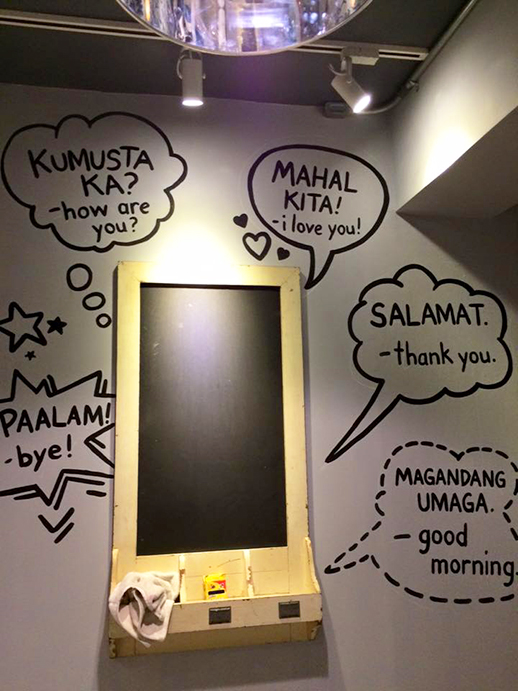 KUMUSTA
KA?
-how are
you?
MAHAL
KITA!
-i love you!
SALAMAT.
-thank you.
PAALAM!
-bye!
MAGANDANG
UMAGA.
- good
morning.